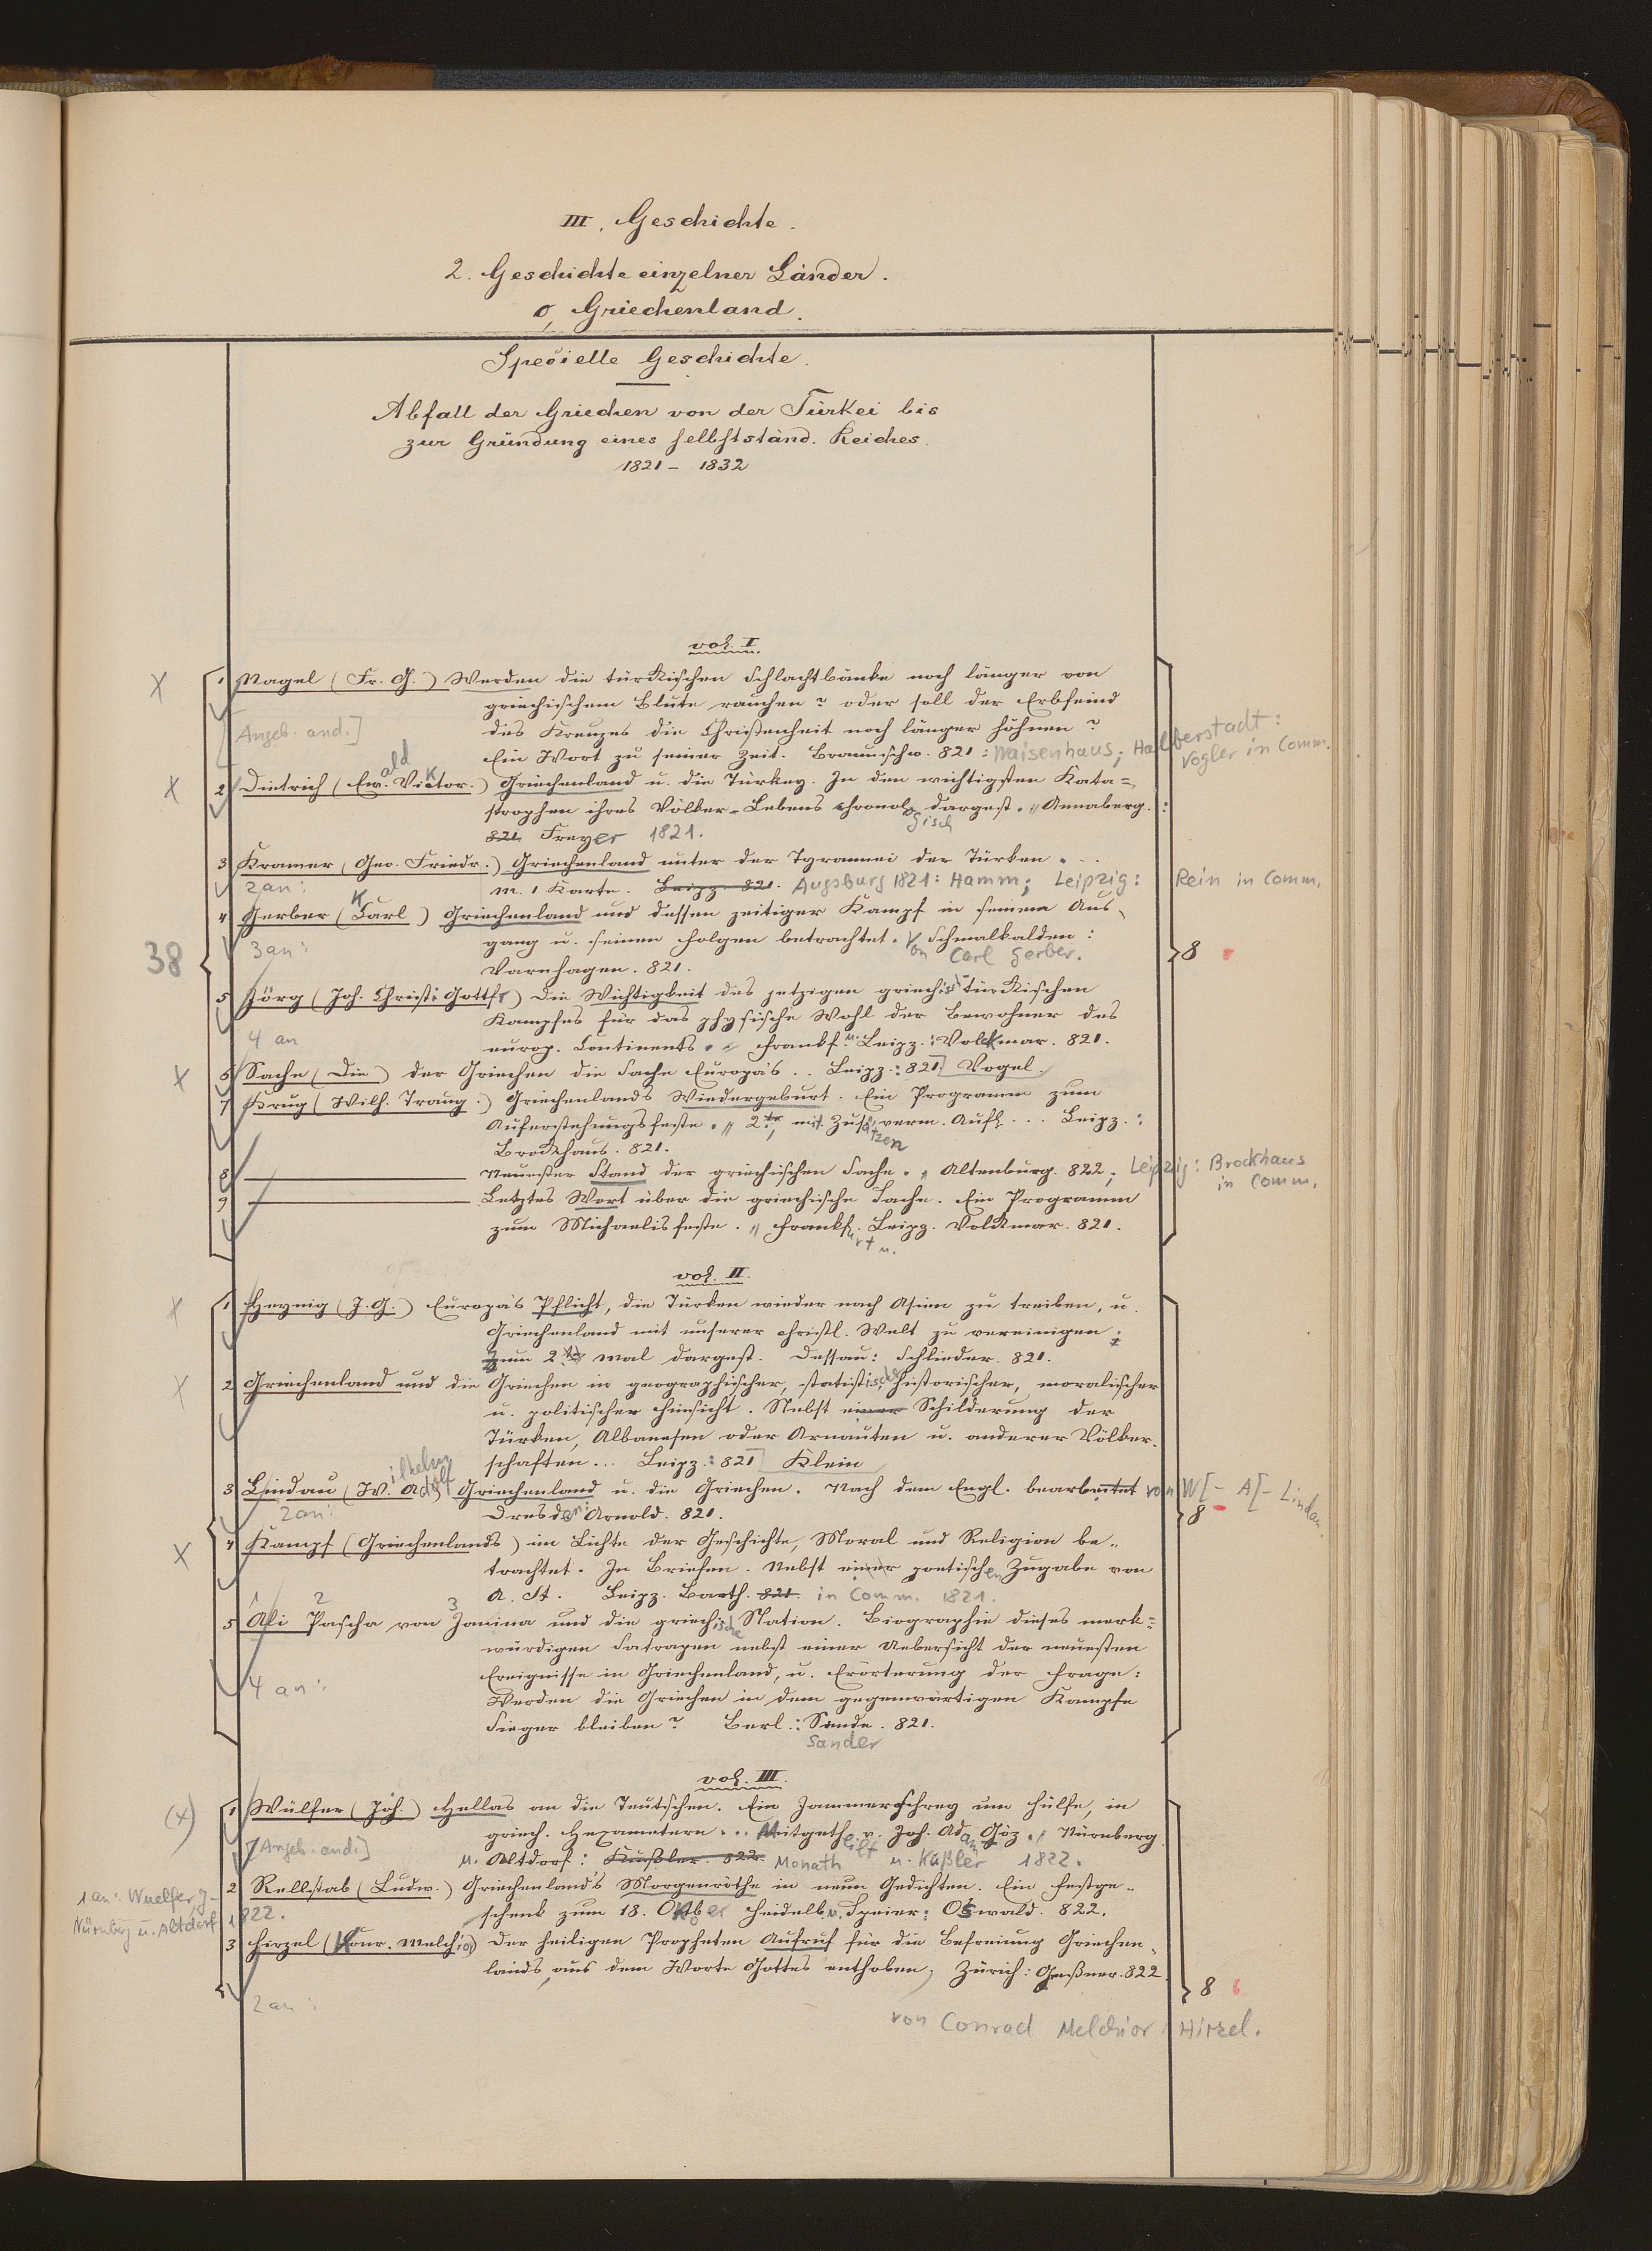 III. Geschichte.
2. Geschichte einzelner Länder.
o, Griechenland.
Specielle Geschichte.
Abfall der Griechen von der Türkei bis
zur Gründung eines selbstständ. Reiches.
1821 – 1832
vol. I.
X 1 Nagel (Fr. G.) Werden die türkischen Schlachtbänke noch länger von
griechischem Blute rauchen? oder soll der Erbfeind
[Angeb. and.] des Kreuzes die Christenheit noch länger höhnen?
Ein Wort zu seiner Zeit. Braunschw. 821: Waisenhaus; Halberstadt:
Vogler in Comm.
X 2 Dietrich (Ewald Viktor.) Griechenland u. die Türkey. In den wichtigsten Kata=
strophen ihres Völker-Lebens chronologisch dargest. „ Annaberg.:
821 Freyer 1821.
3 Kramer (Geo. Friedr.) Griechenland unter der Tyrannei der Türken . . .
2 an: m. 1 Karte. Leipz. 821. Augsburg 1821: Hamm; Leipzig: Rein in Comm.
4 Gerber (Karl) Griechenland und dessen zeitiger Kampf in seinem Aus-
3 an: gang u. seinen Folgen betrachtet. Von Carl Gerber. Schmalkalden:
38 Varnhagen. 821. 8
5 Jörg (Joh. Christi Gottfr) Die Wichtigkeit des jetzigen griechisch-türkischen
Kampfes für das physische Wohl der Bewohner des
4 an europ. Continents. „ Frankf. u. Leipz.: Volckmar. 821.
X 6 Sache (Die) der Griechen die Sache Europa's . . Leipz.: 821] Vogel.
7 Krug (Wilh. Traug.) Griechenlands Wiedergeburt. Ein Programm zum
Auferstehungsfeste. „ 2te, mit Zusätzen verm. Aufl. . . . Leipz.:
Brockhaus. 821.
8 ——— Neuester Stand der griechischen Sache. „ Altenburg. 822; Leipzig: Brockhaus
in Comm.
9 ——— Letztes Wort über die griechische Sache. Ein Programm
zum Michaelisfeste. „ Frankfurt u. Leipz. Volckmar. 821.
vol. II.
X 1 Heynig (J. G.) Europa's Pflicht, die Türken wieder nach Asien zu treiben, u.
Griechenland mit unserer christl. Welt zu vereinigen;
zum 2ten mal dargest. Dessau: Schlieder. 821.
X 2 Griechenland und die Griechen in geographischer, statistischer, historischer, moralischer
u. politischer Hinsicht. Nebst einer Schilderung der
Türken, Albanesen oder Arnauten u. anderer Völker-
schaften... Leipz.: 821] Klein
3 Lindau (Wilhelm Adolf) Griechenland u. die Griechen. Nach dem Engl. bearbeitet von W[– A[– Lindau.
2 an: Dresden: Arnold. 821. 8
X 4 Kampf (Griechenlands) im Lichte der Geschichte, Moral und Religion be-
trachtet. In Briefen. Nebst einer poetischen Zugabe von
A. St. Leipz. Barth. 821. in Comm. 1821.
5 Ali Pascha von Janina und die griechische Nation. Biographie dieses merk=
würdigen Satrapen nebst einer Uebersicht der neuesten
Ereignisse in Griechenland, u. Erörterung der Frage:
4 an: Werden die Griechen in dem gegenwärtigen Kampfe
Sieger bleiben? Berl.: Sande. 821.
Sander
vol. III.
(x) 1 Wülfer (Joh.) Hellas an die Teutschen. Ein Jammerschrey um Hülfe, in
griech. Hexametern... Mitgetheilt v. Joh. Adam Göz. „ Nürnberg
[Angeb. and.] u. Altdorf: Kußler. 822. Monath u. Kußler 1822.
2 Rellstab (Ludw.) Griechenland's Morgenröthe in neun Gedichten. Ein Festge-
1 an: Wuelfer, J– Nürnberg u. Altdorf 1822.
schenk zum 18. Oktober Heidelb. u. Speier: Oswald. 822.
3 Hirzel (Konr. Melchior) Der heiligen Propheten Aufruf für die Befreiung Griechen-
lands, aus dem Worte Gottes enthoben; Zürich: Geßner. 822.
2 an: 8
von Conrad Melchior Hirzel.